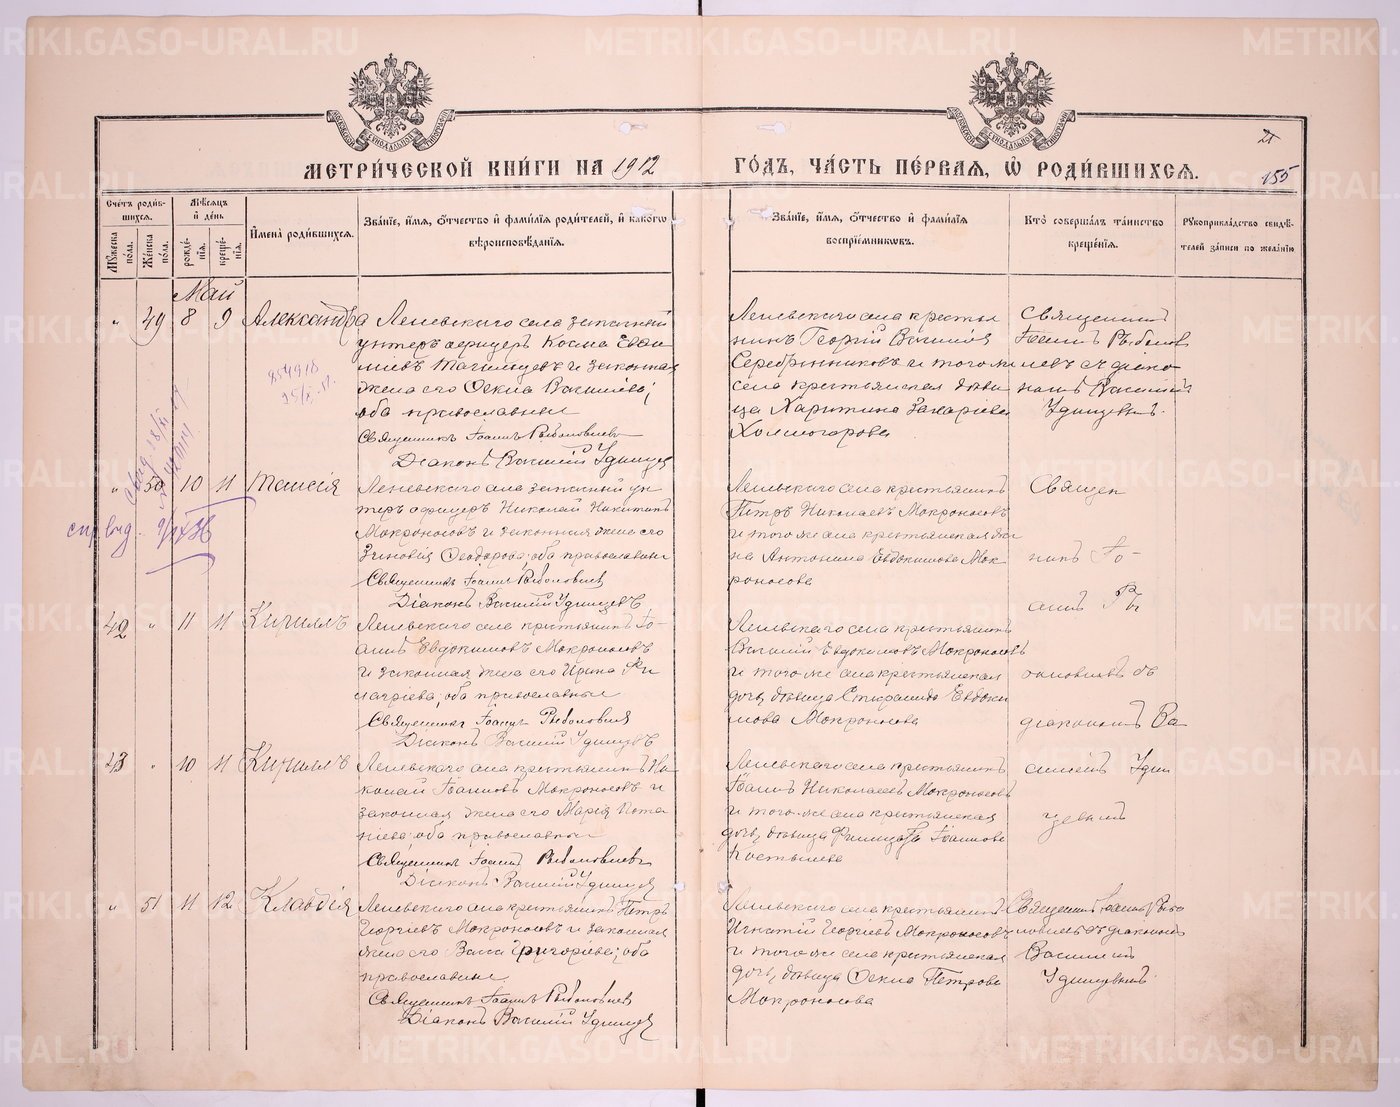 МЕТРИ́ЧЕСКОЙ КНИ́ГИ НА 1912 ГО́ДЪ, ЧА́СТЬ ПЕ́РВАЯ, Ѽ РОДИ́ВШИХСЯ.
21
155
Сче́тъ роди́в-
шихся.
Му́жеска по́ла.
Же́нска по́ла.
Мѣ́сяцъ и де́нь
рожде́нія.
креще́нія.
Имена̀ роди́вшихся.
Зва́нїе, и́мя, ѻ҆́тчество и҆ фами́лїя роди́телей, и҆ како́гѡ
вѣроисповѣ́данїя.
Зва́нїе, и́мя, ѻ҆́тчество и҆ фами́лїя
восприе́мникѡвъ.
Кто̀ соверша́лъ та́инство
креще́нїя.
Рꙋкоприкла́дство свидѣ́-
телей за́писи по жела́нїю
Май
" 49 8 9 Александра
Леневскаго села запасный
унтеръ офицеръ Косма Евфи
миевъ Тагильцевъ и законная
жена его Фекла Васильева;
оба православные
Священникъ Іоаннъ Рыболовлевъ
Діаконъ Василій Удинцевъ
Леневскаго села крестья
нинъ Георгій Васильевъ
Серебрянниковъ и того же
села крестьянская дѣви
ца Харитина Захаріева
Холмогорова
Священникъ
Іоаннъ Рыболов
левъ съ діако
номъ Василіемъ
Удинцевымъ.
854918
" 50 10 11 Таисія
Леневскаго села запасный ун
теръ офицеръ Николай Никитинъ
Мокроносовъ и законная жена его
Зиновія Ѳеодорова; оба православные
Священникъ Іоаннъ Рыболовлевъ
Діаконъ Василій Удинцевъ
Леневскаго села крестьянинъ
Петръ Николаевъ Мокроносовъ
и того же села крестьянская же
на Антонина Евдокимова Мок
роносова
42 " 11 11 Кириллъ
Леневскаго села крестьянинъ Іо-
аннъ Евдокимовъ Мокроносовъ
и законная жена его Ирина
оба православные
Священникъ Іоаннъ Рыболовлевъ
Діаконъ Василій Удинцевъ
Леневскаго села крестьянинъ
Василій Евдокимовъ Мокроносовъ
и того же села крестьянская
дочь, дѣвица Евдоки
мова Мокроносова
43 " 10 11 Кириллъ
Леневскаго села крестьянинъ Ни
колай Іоанновъ Мокроносовъ и
законная жена его Марія Пота
піева; оба православные
Священникъ Іоаннъ Рыболовлевъ
Діаконъ Василій Удинцевъ
Леневскаго села крестьянинъ
Іоаннъ Николаевъ Мокроносовъ
и того же села крестьянская
дочь, дѣвица Іоаннова
Костылева
Священ
никъ Іо-
аннъ Ры
боловлевъ съ
діакономъ Ва
силіемъ Удин
цевымъ
" 51 11 12 Клавдія
Леневскаго села крестьянинъ Петръ
Георгіевъ Мокроносовъ и законная
жена его Васса Григорьева; оба
православные
Священникъ Іоаннъ Рыболовлевъ
Діаконъ Василій Удинцевъ
Леневскаго села крестьянинъ
Игнатій Георгіевъ Мокроносовъ
и того же села крестьянская
дочь, дѣвица Фекла Петрова
Мокроносова
Священникъ Іоаннъ Рыбо
ловлевъ съ діакономъ
Василіемъ
Удинцевымъ.
METRIKI.GASO-URAL.RU